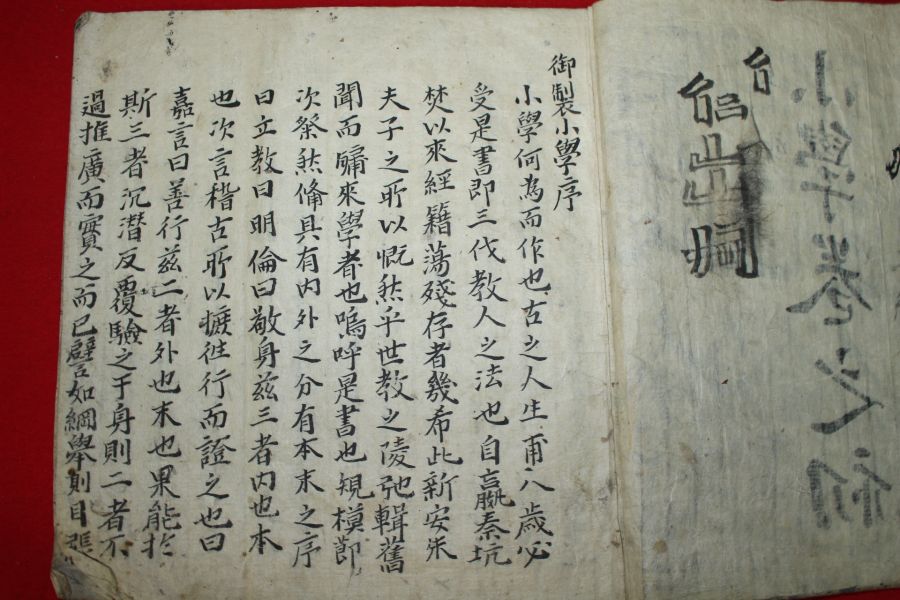 御製小學序
小學何為而作也古之人生甫八歲必
受是書即三代教人之法也自嬴秦坑
焚以來經籍蕩殘存者幾希此新安朱
夫子之所以慨然乎世教之陵弛輯舊
聞而牖來學者也嗚呼是書也規模節
次粲然俻具有內外之分有本末之序
曰立教曰明倫曰敬身茲三者內也本
也次言稽古所以摭徃行而證之也曰
嘉言曰善行茲二者外也末也果能於
斯三者沉潜反覆驗之于身則二者不
過推廣而實之而已譬如綱舉則目張
小學卷之初